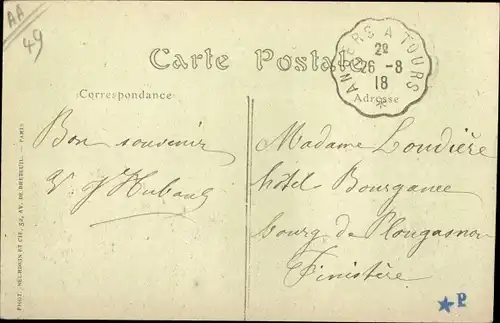 AA
49
Carte Postale
ANGERS A TOURS
2º
26 - 8
18
Correspondance
Adresse
Bon souvenir
Madame Loudière
hôtel Bourganee
bourg de Plougasnou
Finistère
PHOT. NEURDEIN ET CIE, 52, AV. DE BRETEUIL. — PARIS
P